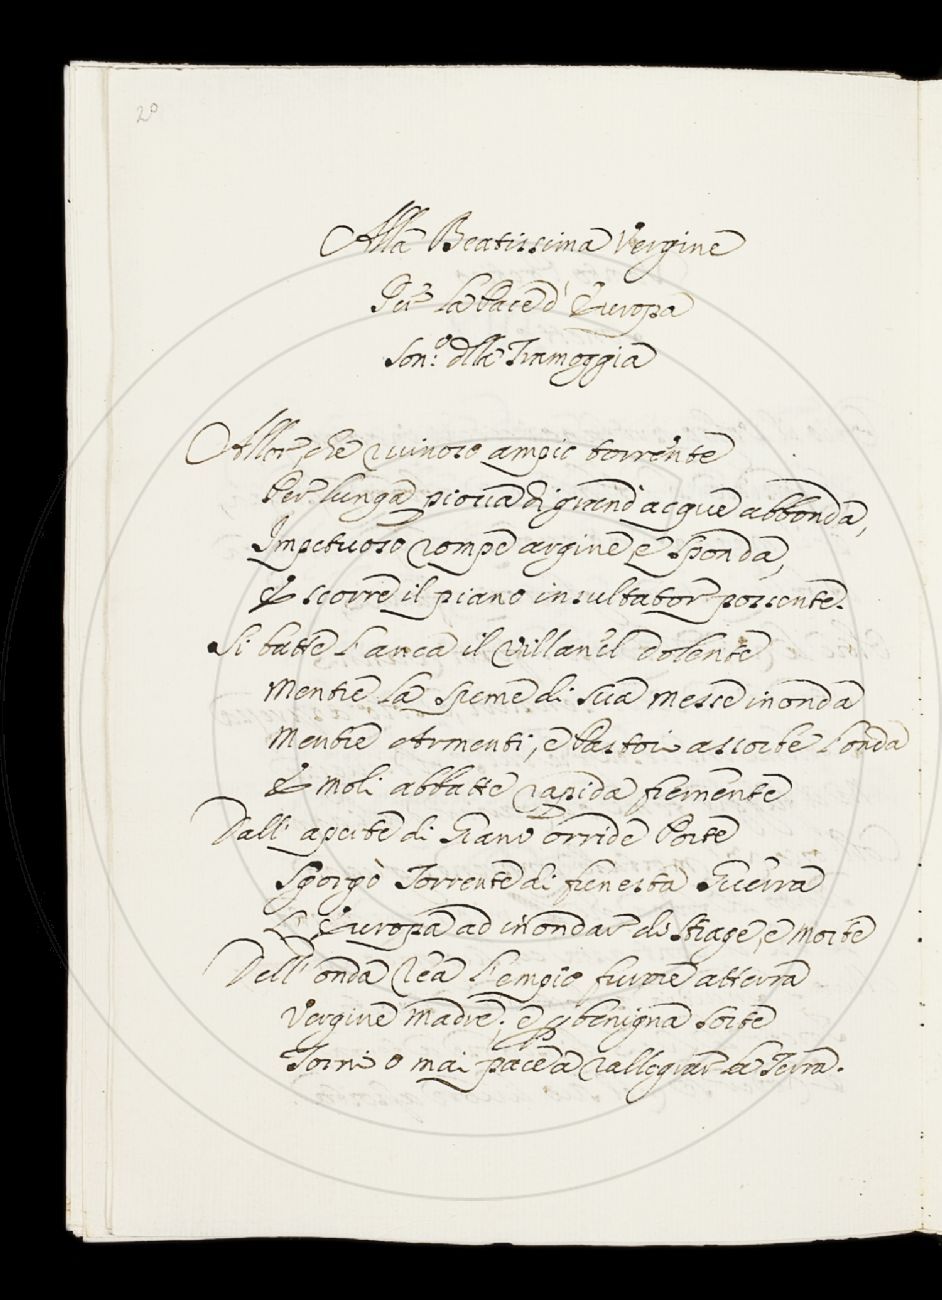 20
Alla Beatissima Vergine
Per la Pace d'Europa
Son.º dlla Tramoggia
Allor, che ruinoso ampio torrente
Per lunga pioria di grand acque abbonda,
Impetuoso rompe argine, e sponda,
E scorre il piano insultator possente.
Si batte l'anca il Villanel dolente
Mentre la speme di sua messe inonda
Mentre Armenti, e Pastori assorbe l'onda
E moli abbatte rapida fremente
Dall' aperte di Giano orride Porte
Sgorgò Torrente di funesta Guerra
L'Europa ad inondar di Strage, e morte
Dell' onda rea l'empio furore atterra
Vergine Madre. e benigna sorte
Torni o mai pace a rallegrar la Terra.